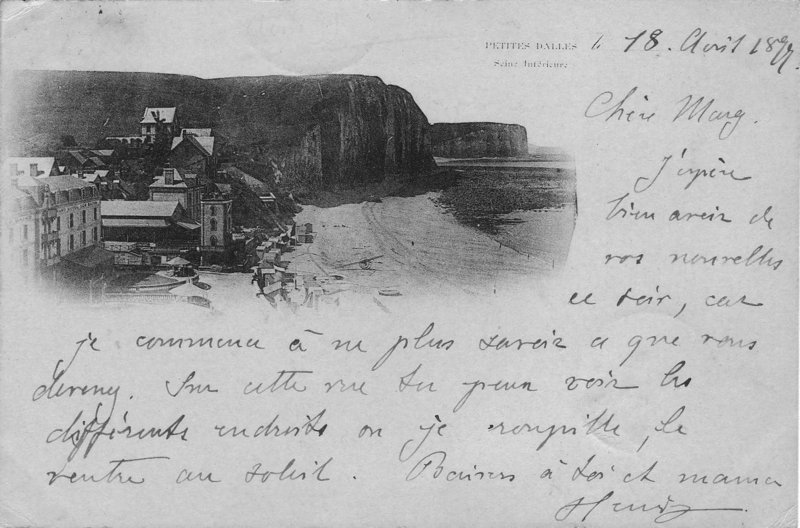 PETITES DALLES le 18. Avril 1897
Seine Inférieure
Chère Marg.
J'espère
bien avoir de
vos nouvelles
ce soir, car
je commence à ne plus savoir ce que vous
devenez. Sur cette vue tu peux voir les
différents endroits où je roupille, le
ventre au soleil. Baisers à toi et maman
Henry